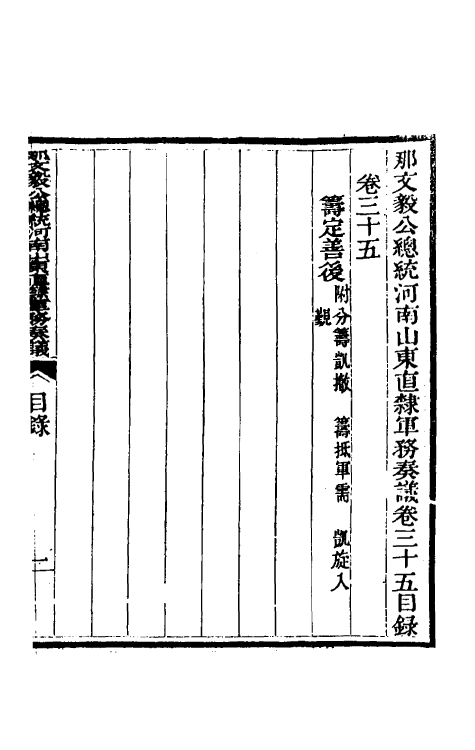 那文毅公總統河南山東直隸軍務奏議卷三十五目錄
卷三十五
籌定善後附分籌凱撤　籌抵軍需　凱旋入
覲
那文毅公總統河南山東直隸軍務奏議
目錄
一